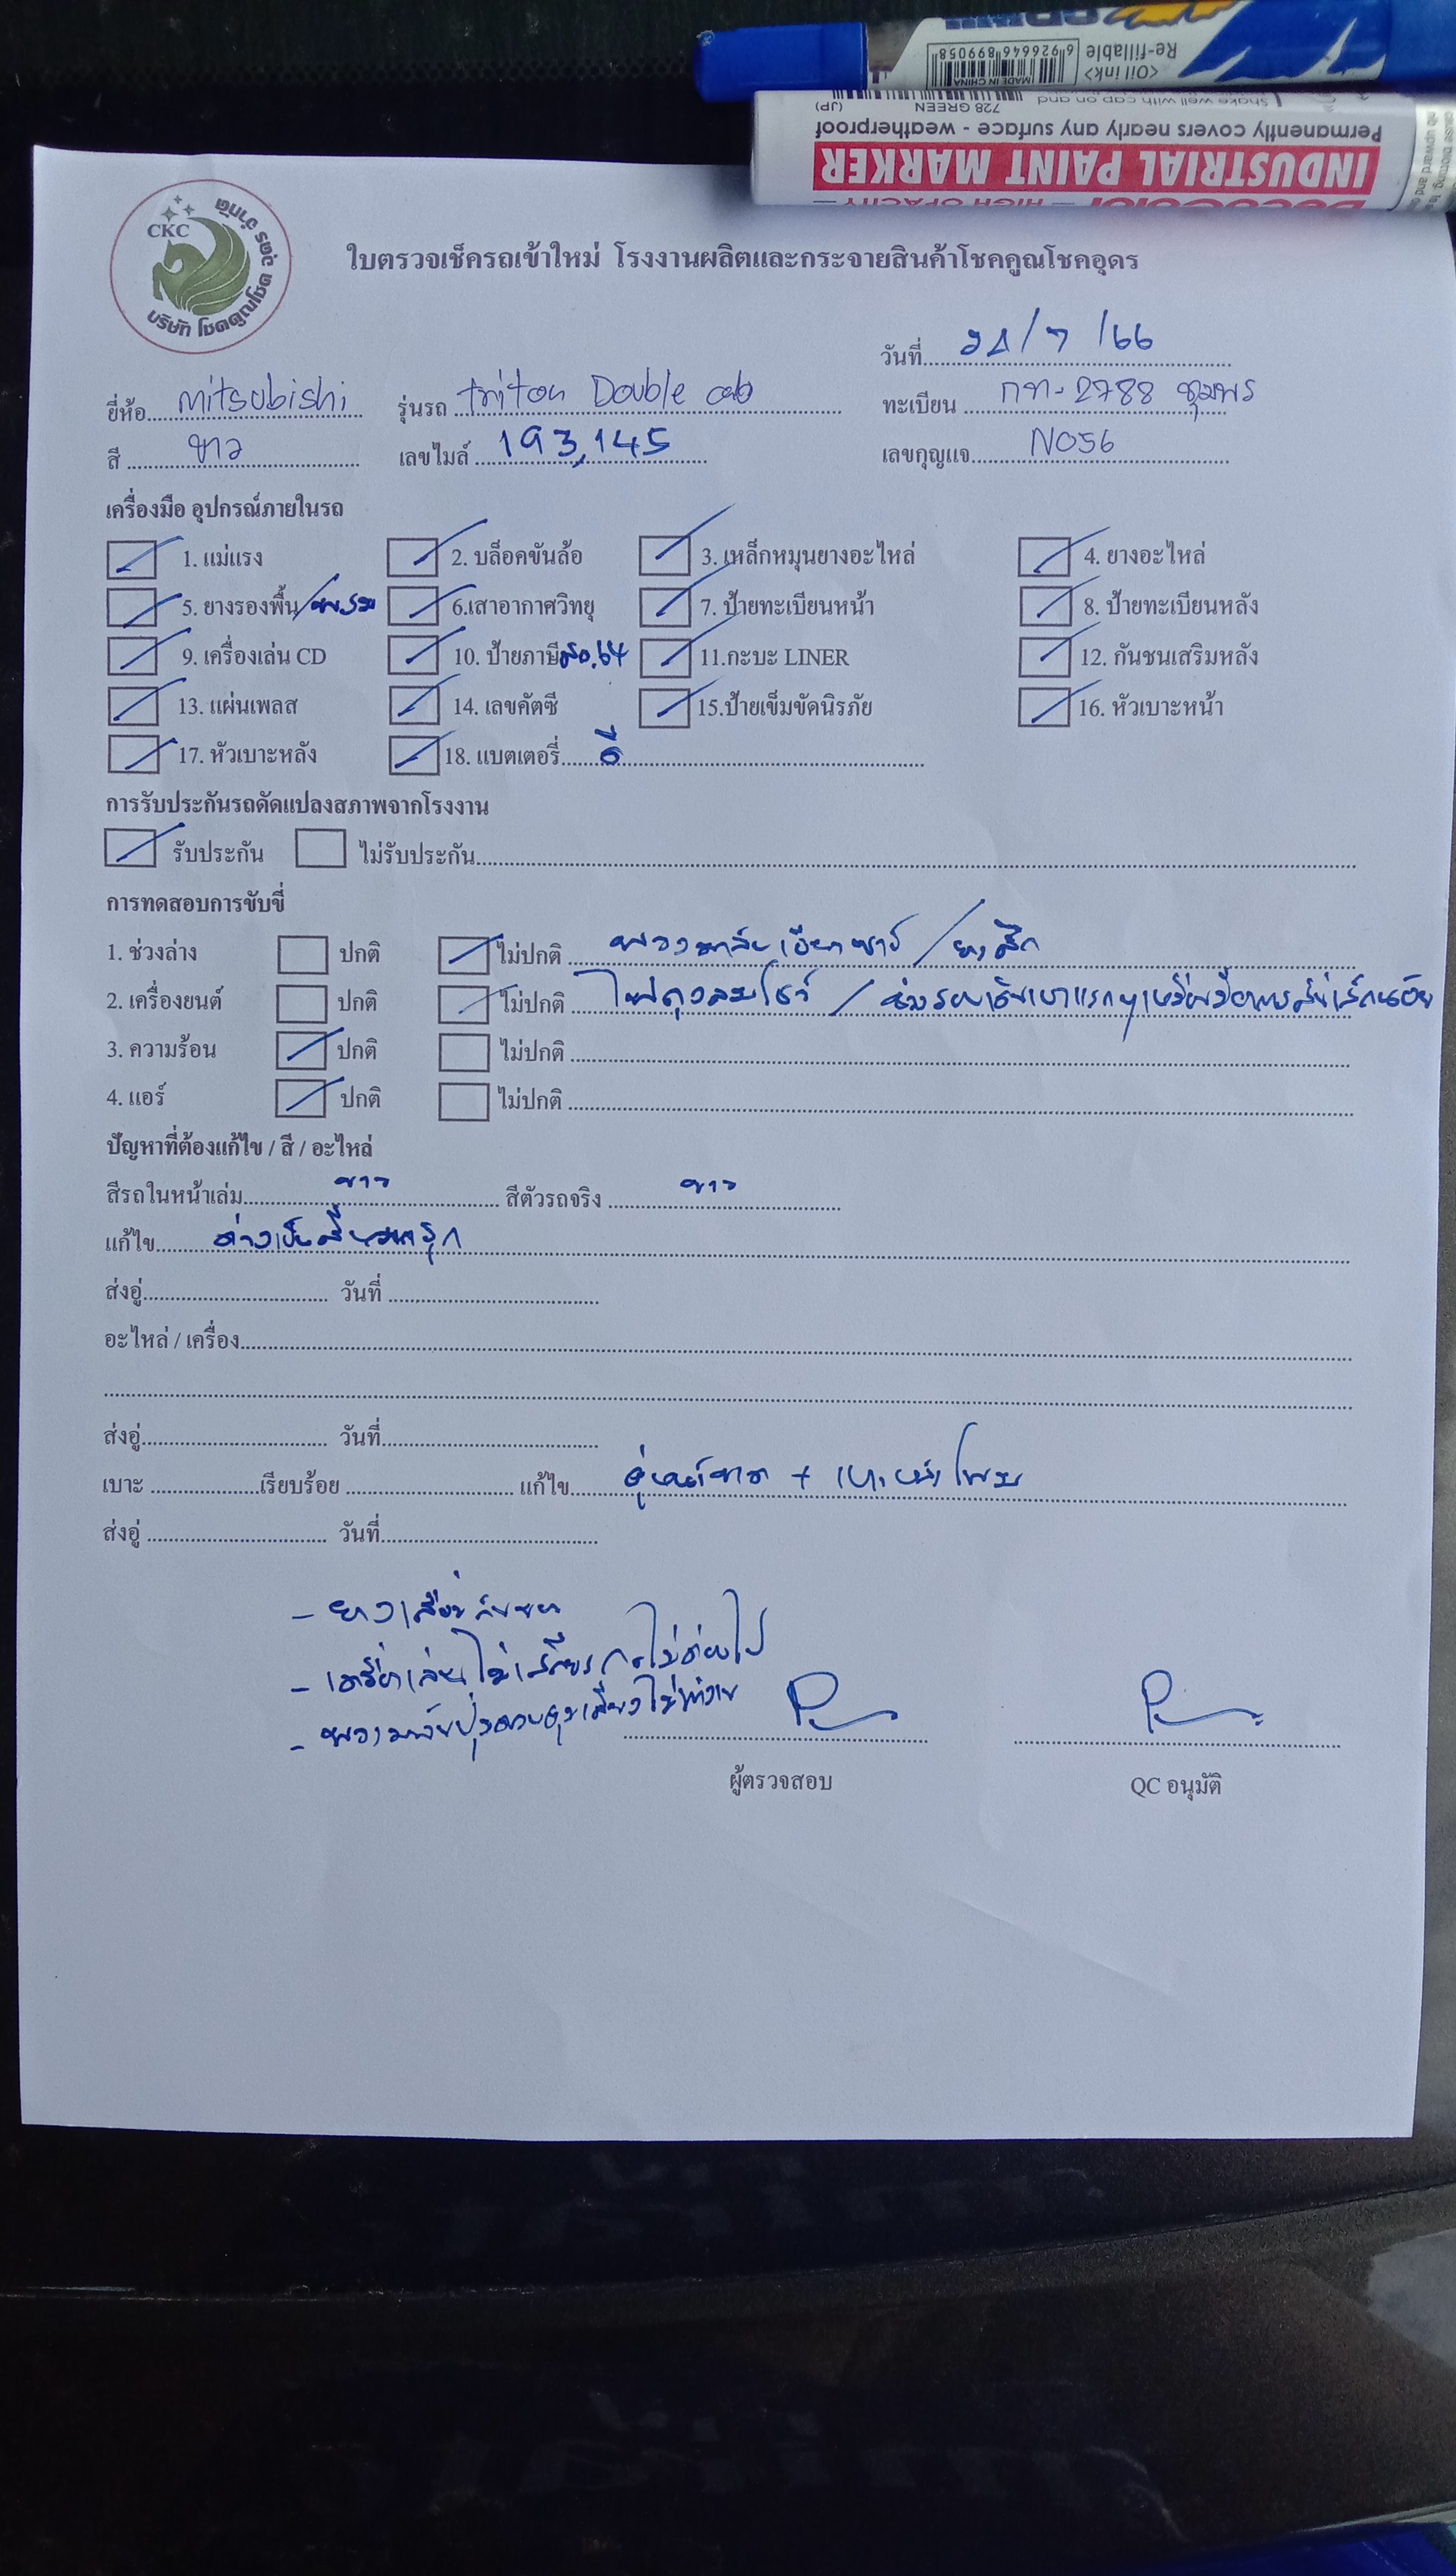 <Oil ink>
Re-fillable
MADE IN CHINA
6 926646 899058
Shake well with cap on and
728 GREEN (JP)
Permanently covers nearly any surface - weatherproof
INDUSTRIAL PAINT MARKER
DecoColor
— HIGH OPACITY —
CKC
บริษัท โชคคูณโชค อุดร จำกัด
ใบตรวจเช็ครถเข้าใหม่ โรงงานผลิตและกระจายสินค้าโชคคูณโชคอุดร
วันที่ 21/7/66
ยี่ห้อ mitsubishi รุ่นรถ triton Double cab ทะเบียน กท-2788 ชุมพร
สี ขาว เลขไมล์ 193,145 เลขกุญแจ N056
เครื่องมือ อุปกรณ์ภายในรถ
1. แม่แรง 2. บล็อคขันล้อ 3. เหล็กหมุนยางอะไหล่ 4. ยางอะไหล่
5. ยางรองพื้น/พรม 6.เสาอากาศวิทยุ 7. ป้ายทะเบียนหน้า 8. ป้ายทะเบียนหลัง
9. เครื่องเล่น CD 10. ป้ายภาษี 64 11.กะบะ LINER 12. กันชนเสริมหลัง
13. แผ่นเพลส 14. เลขคัตซี 15.ป้ายเข็มขัดนิรภัย 16. หัวเบาะหน้า
17. หัวเบาะหลัง 18. แบตเตอรี่ ดี
การรับประกันรถดัดแปลงสภาพจากโรงงาน
รับประกัน ไม่รับประกัน
การทดสอบการขับขี่
1. ช่วงล่าง ปกติ ไม่ปกติ พวงมาลัยเอียงซ้าย / ยางสึก
2. เครื่องยนต์ ปกติ ไม่ปกติ ไฟถุงลมโชว์ / ช่วงรอบเดินเบาแรกๆเหมือนมีอาการสั่นเล็กน้อย
3. ความร้อน ปกติ ไม่ปกติ
4. แอร์ ปกติ ไม่ปกติ
ปัญหาที่ต้องแก้ไข / สี / อะไหล่
สีรถในหน้าเล่ม ขาว สีตัวรถจริง ขาว
แก้ไข ด่างเป็นสี
ส่งอู่ วันที่
อะไหล่ / เครื่อง
ส่งอู่ วันที่
เบาะ เรียบร้อย แก้ไข คู่หน้าขาด + เบาะหลังโทรม
ส่งอู่ วันที่
- ยาง
- เครื่องเล่นไม่เสถียร
- พวงมาลัยปุ่มควบคุมเสียงไม่ทำงาน
ผู้ตรวจสอบ QC อนุมัติ